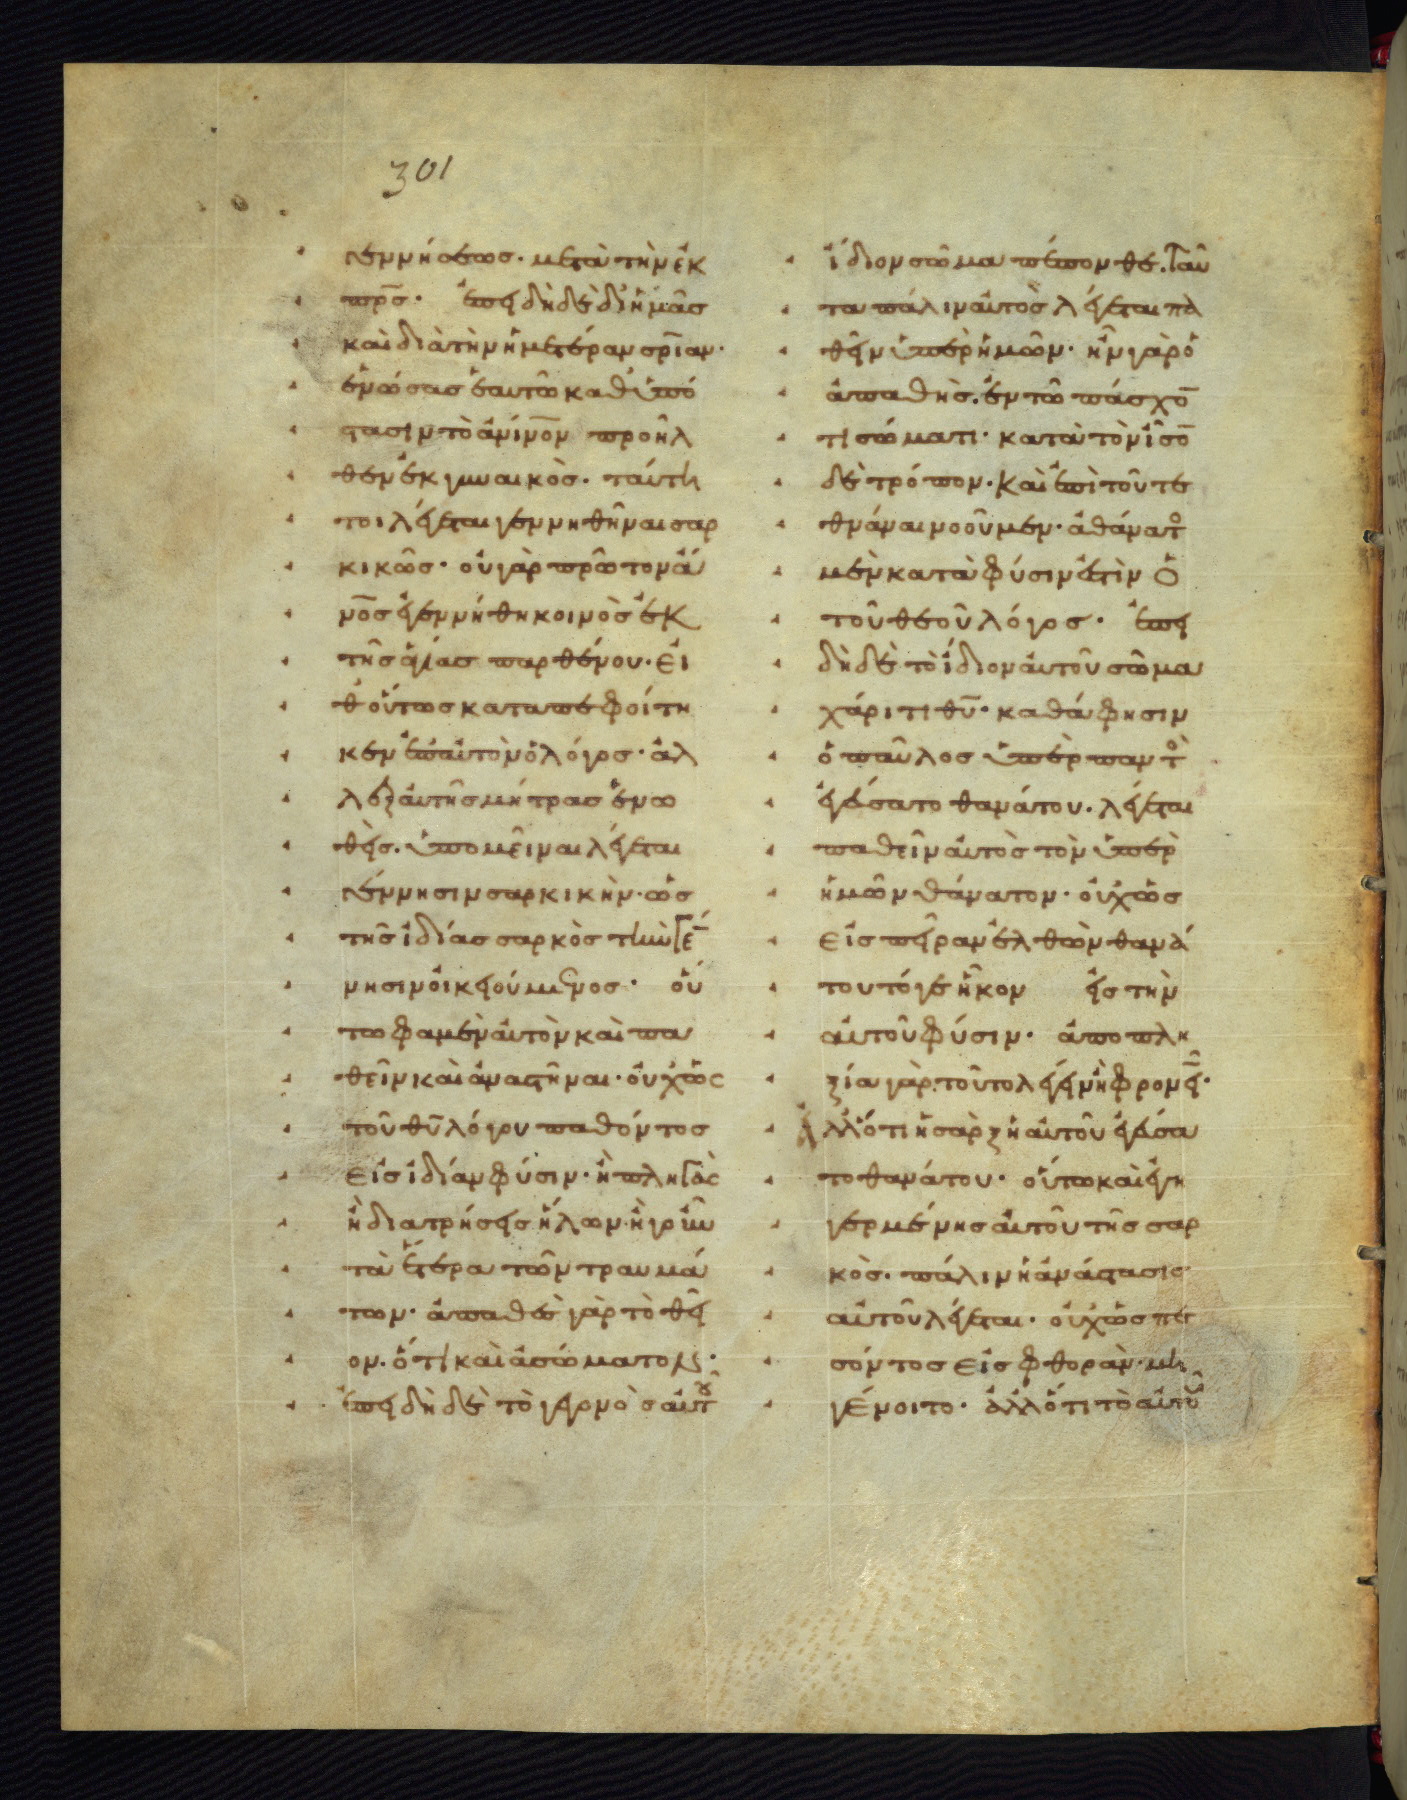 301
γεννήσεως· μετὰ τὴν ἐκ
πρ̅ς· ἐπειδὴ δὲ δι' ἡμᾶς
καὶ διὰ τὴν ἡμετέραν σρ̅ίαν·
ἑνώσας ἑαυτῶ καθ' ὑπό
στασιν τὸ ἀνίν̅ον προῆλ
θεν ἐκ γυναικὸς· ταύτη
τοι λέγεται γεννηθῆναι σαρ
κικῶς· οὐ γὰρ πρῶτον ἄν
ν̅ος ἐγεννήθη κοινὸς ἐκ
τῆς ἁγίας παρθένου· εἶ
θ' οὕτως καταπεφοίτη
κεν ἐπ' αὐτὸν ὁ λόγος· ἀλ
λ' ἐξ αὐτῆς μήτρας ἑνω
θεὶς· ὑπομεῖναι λέγεται
γέννησιν σαρκικὴν· ὡς
τῆς ἰδίας σαρκὸς τὴν γέ̅
νησιν οἰκειούμενος· οὕ
τω φαμὲν αὐτὸν καὶ πα
θεῖν καὶ ἀναστῆναι· οὐχ ὡς
τοῦ θυ̅ λόγου παθόντος
εἰς ἰδίαν φύσιν· ἢ πληγὰς
ἢ διατρήσεις ἥλων· ἢ γοῦν
τὰ ἕτερα τῶν τραυμά
των· ἀπαθὲς γὰρ τὸ θεῖ
ον· ὅτι καὶ ἀσώματον·
ἐπειδὴ δὲ τὸ γεγονὸς αὐτοῦ
ἴδιον σῶμα πέπονθε· ταῦ
τα πάλιν αὐτὸς λέγεται πα
θεῖν ὑπὲρ ἡμῶν· ἦν γὰρ ὁ
ἀπαθὴς· ἐν τῶ πάσχο̅
τι σώματι· κατὰ τὸν ἴσο̅
δὲ τρόπον· καὶ ἐπὶ τοῦ τε
θνάναι νοοῦμεν· ἀθάνατο
μὲν κατὰ φύσιν ἐστὶν ὁ
τοῦ θεοῦ λόγος· ἐπει
δὴ δὲ τὸ ἴδιον αὐτοῦ σῶμα
χάριτι θυ̅· καθά φησιν
ὁ παῦλος ὑπὲρ παντὸ
ἐγεύσατο θανάτου· λέγεται
παθεῖν αὐτὸς τὸν ὑπὲρ
ἡμῶν θάνατον· οὐχ ὡς
εἰς πεῖραν ἐλθὼν θανά
του τό γε ἧκον εἰς τὴν
αὐτοῦ φύσιν· ἀποπλη
ξία γὰρ τοῦτο λέγειν ἢ φρονεῖ̅·
Ἀλλ' ὅτι ἡ σὰρξ ἡ αὐτοῦ ἐγεύσα
το θανάτου· οὕτω καὶ ἐγη
γερμένης αὐτοῦ τῆς σαρ
κὸς· πάλιν ἡ ἀνάστασις
αὐτοῦ λέγεται· οὐχ ὡς πε
σόντος εἰς φθορὰν· μὴ
γένοιτο· ἀλλ' ὅτι τὸ αὐτοῦ